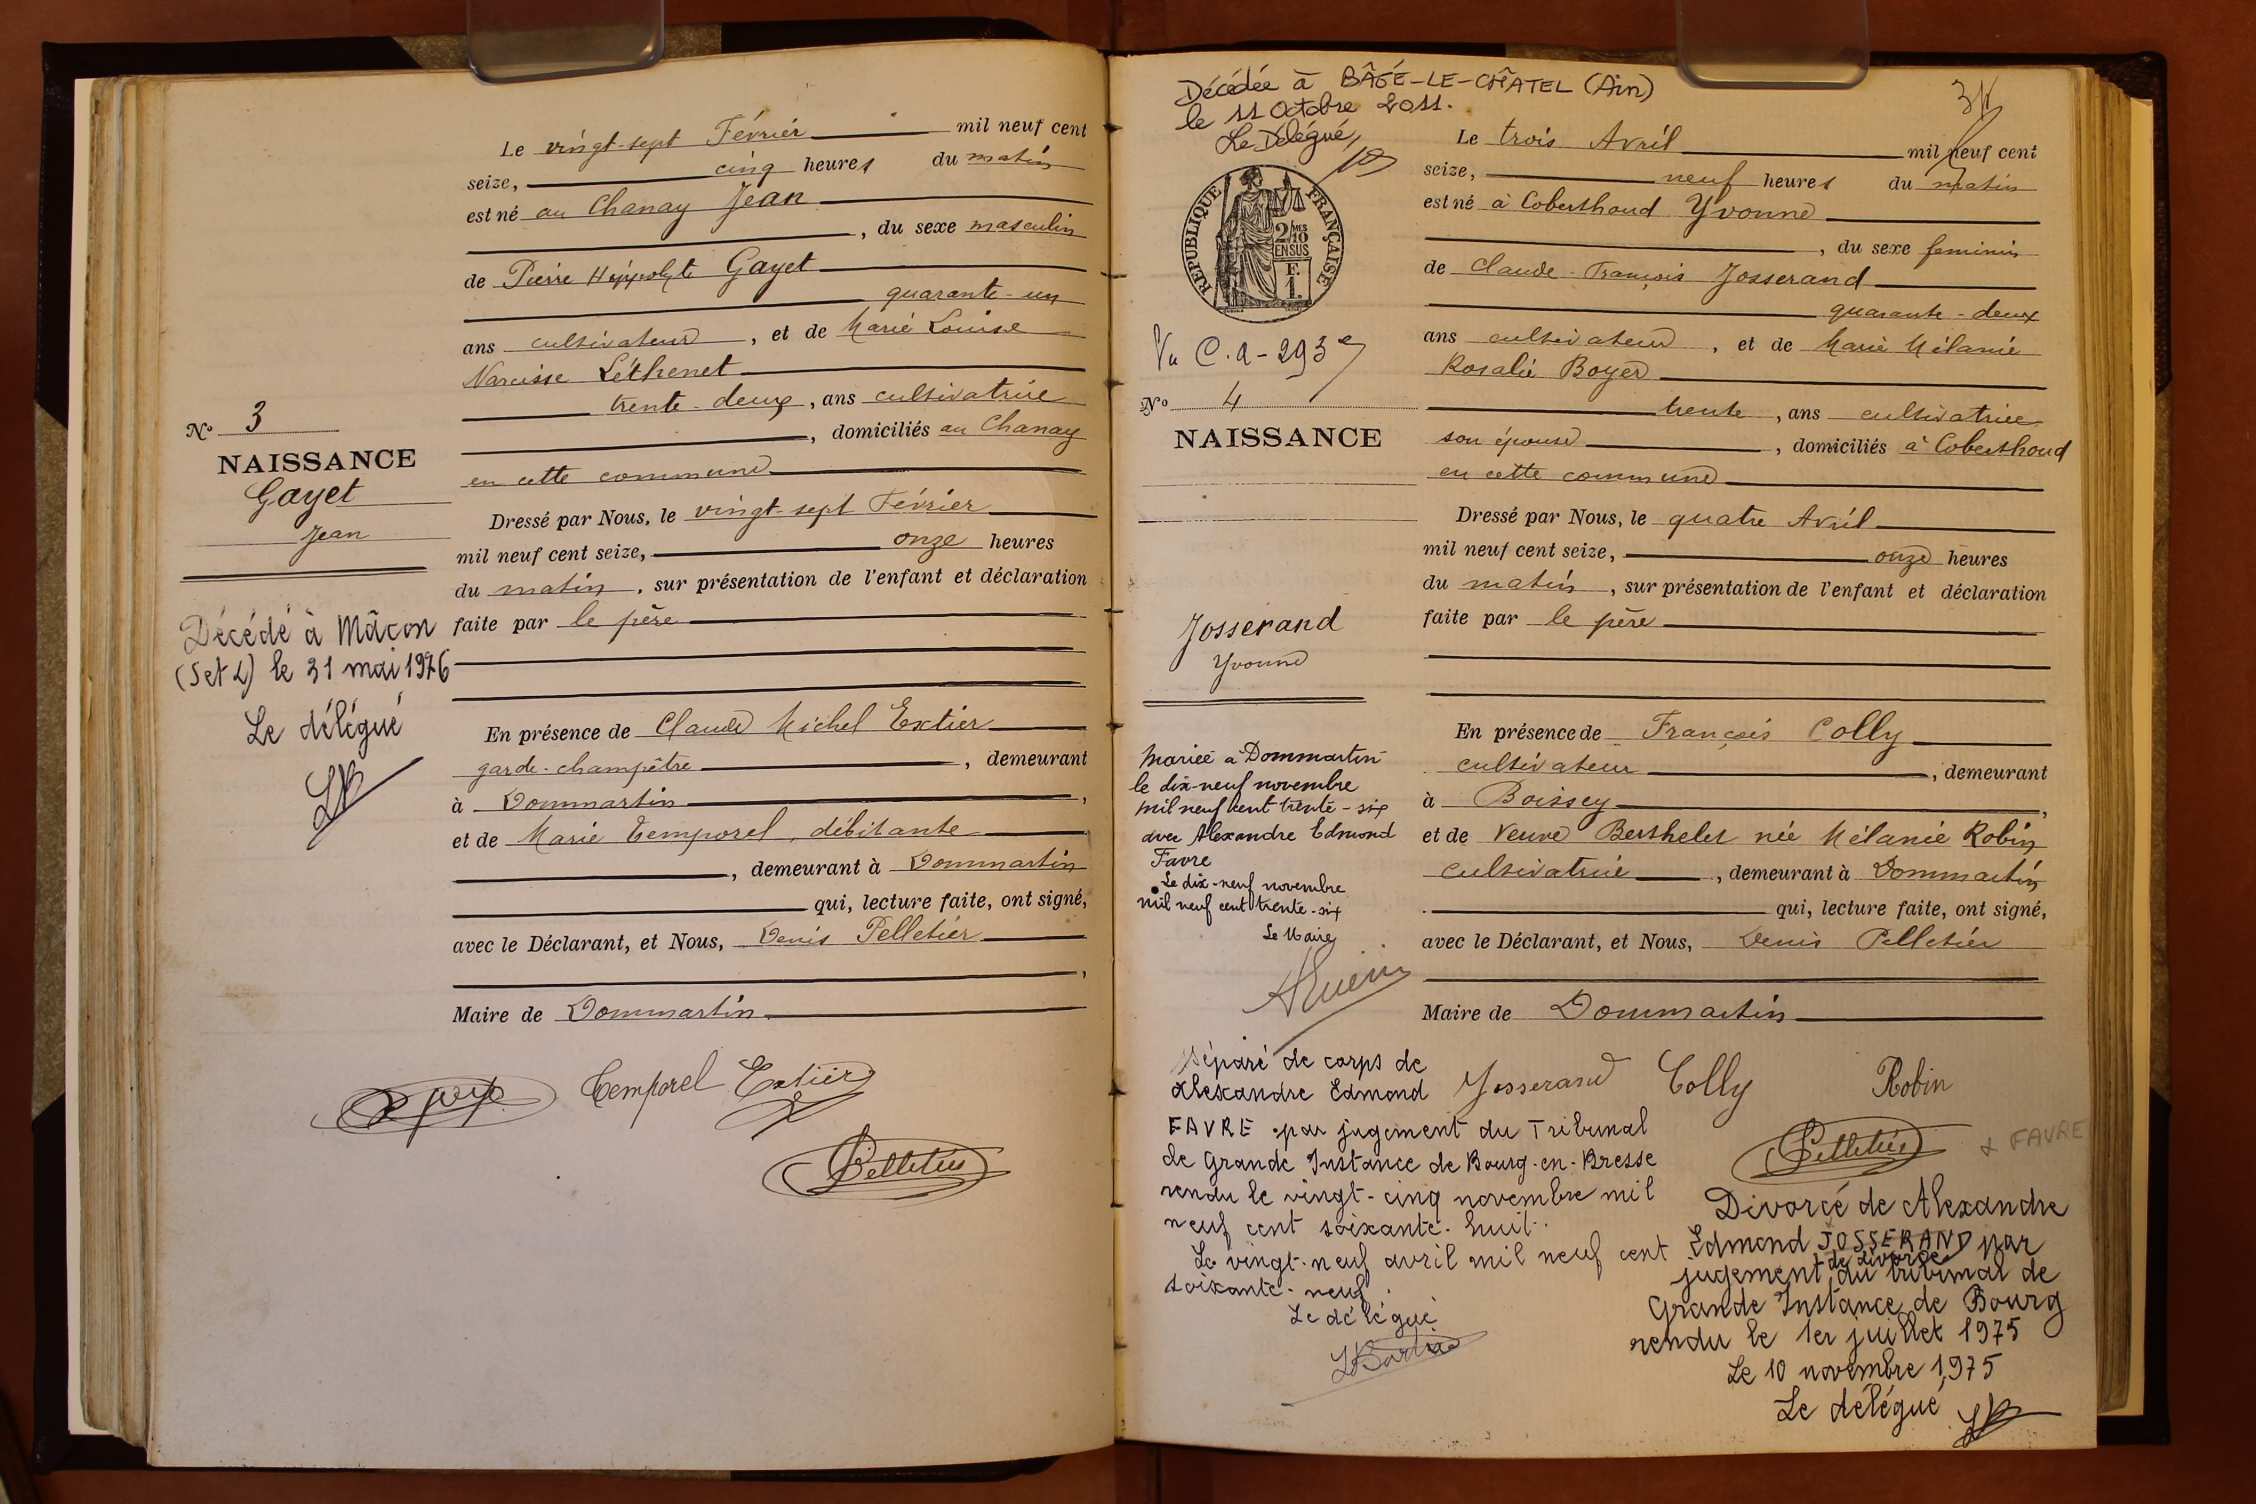 Le vingt-sept Février mil neuf cent
seize, cinq heures du matin
est né au Chanay Jean
, du sexe masculin
de Pierre Hippolyte Gayet
quarante-un
ans cultivateur, et de Marie Louise
Narcisse Léthenet
trente-deux, ans cultivatrice
, domiciliés au Chanay
en cette commune
Dressé par Nous, le vingt-sept Février
mil neuf cent seize, onze heures
du matin, sur présentation de l'enfant et déclaration
faite par le père
En présence de Claude Michel Extier
garde-champêtre, demeurant
à Dommartin,
et de Marie Temporel, débitante
, demeurant à Dommartin
qui, lecture faite, ont signé,
avec le Déclarant, et Nous, Denis Pelletier
,
Maire de Dommartin
Temporel Extier
Pelletier
No 3
NAISSANCE
Gayet
Jean
Décédé à Mâcon
(S et L) le 31 mai 1976
Le délégué
Décédée à BÂGÉ-LE-CHÂTEL (Ain)
le 11 Octobre 2011.
Le Délégué,
RÉPUBLIQUE FRANÇAISE
2/10 MES
EN SUS
F.
1.
Vu C.a-293e
No 4
NAISSANCE
Josserand
Yvonne
Mariée à Dommartin
le dix-neuf novembre
mil neuf cent trente-six
avec Alexandre Edmond
Favre
Le dix-neuf novembre
mil neuf cent trente-six
Le Maire
Le trois Avril mil neuf cent
seize, neuf heures du matin
est né à Coberthoud Yvonne
, du sexe feminin
de Claude-François Josserand
quarante-deux
ans cultivateur, et de Marie Mélanie
Rosalie Boyer
trente, ans cultivatrice
son épouse, domiciliés à Coberthoud
en cette commune
Dressé par Nous, le quatre Avril
mil neuf cent seize, onze heures
du matin, sur présentation de l'enfant et déclaration
faite par le père
En présence de François Colly
cultivateur, demeurant
à Boissey,
et de Veuve Berthelet née Mélanie Robin
cultivatrice, demeurant à Dommartin
qui, lecture faite, ont signé,
avec le Déclarant, et Nous, Denis Pelletier
Maire de Dommartin
Josserand Colly Robin
Pelletier
Séparé de corps de
Alexandre Edmond
FAVRE par jugement du Tribunal
de Grande Instance de Bourg-en-Bresse
rendu le vingt-cinq novembre mil
neuf cent soixante-huit.
Le vingt-neuf avril mil neuf cent
soixante-neuf.
Le délégué
+ FAVRE
Divorcé de Alexandre
Edmond JOSSERAND par
de divorce
jugement du tribunal de
Grande Instance de Bourg
rendu le 1er juillet 1975
Le 10 novembre 1975
Le délégué